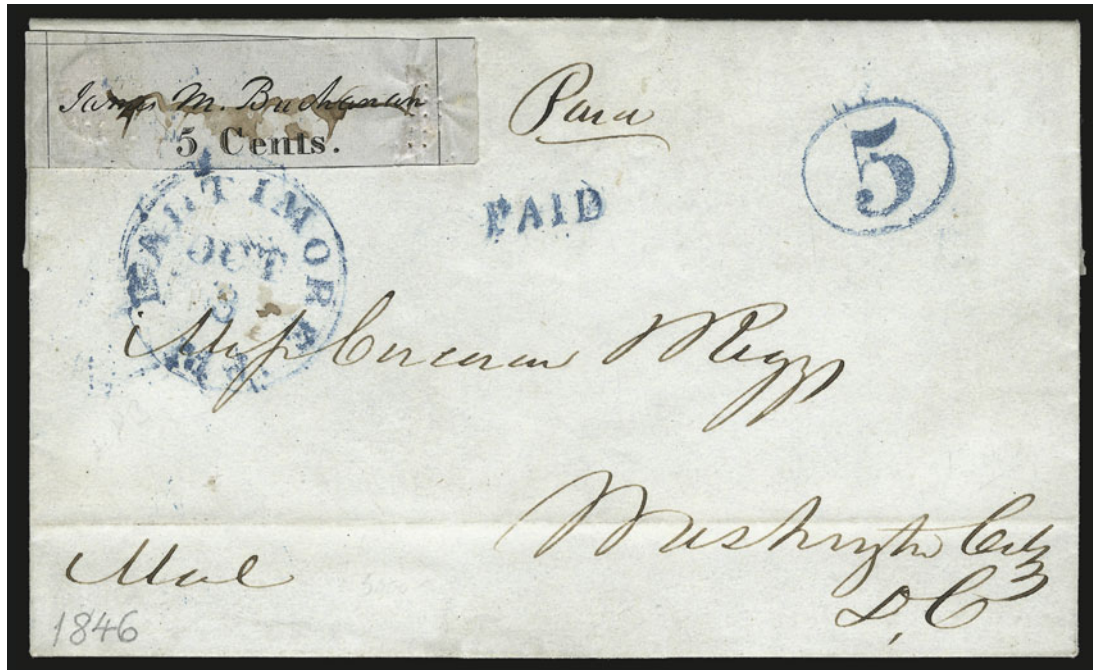 James M. Buchanan
5 Cents.
Paid
5
PAID
BALTIMORE Md.
OCT
3
Mess Corcoran & Riggs
Washington City
D.C
Mail
1846